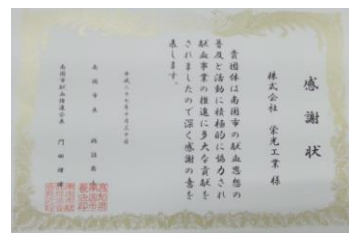 感謝状
株式会社 栄光工業 様
貴団体は南国市の献血思想の
普及と活動に積極的に協力され
献血事業の推進に多大な貢献を
されましたので深く感謝の意を
表します。
平成二十七年十月三十日
南国市長
南国市献血推進会長 門田